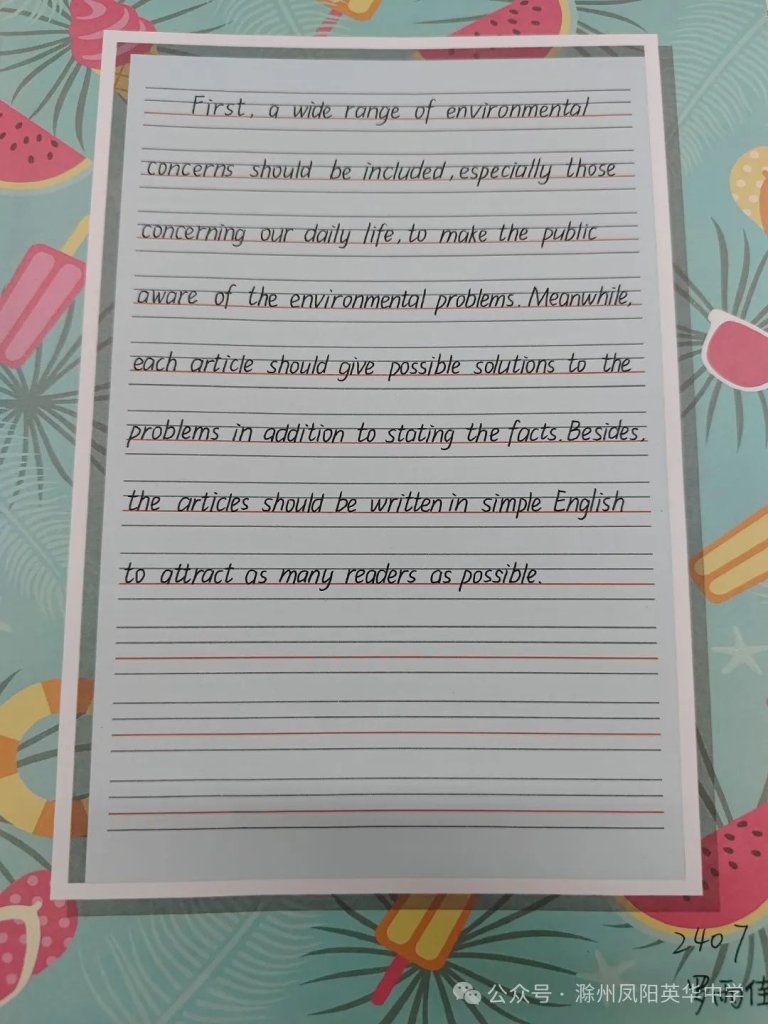 First, a wide range of environmental
concerns should be included, especially those
concerning our daily life, to make the public
aware of the environmental problems. Meanwhile,
each article should give possible solutions to the
problems in addition to stating the facts. Besides,
the articles should be written in simple English
to attract as many readers as possible.
2407
罗雨佳
公众号 · 滁州凤阳英华中学